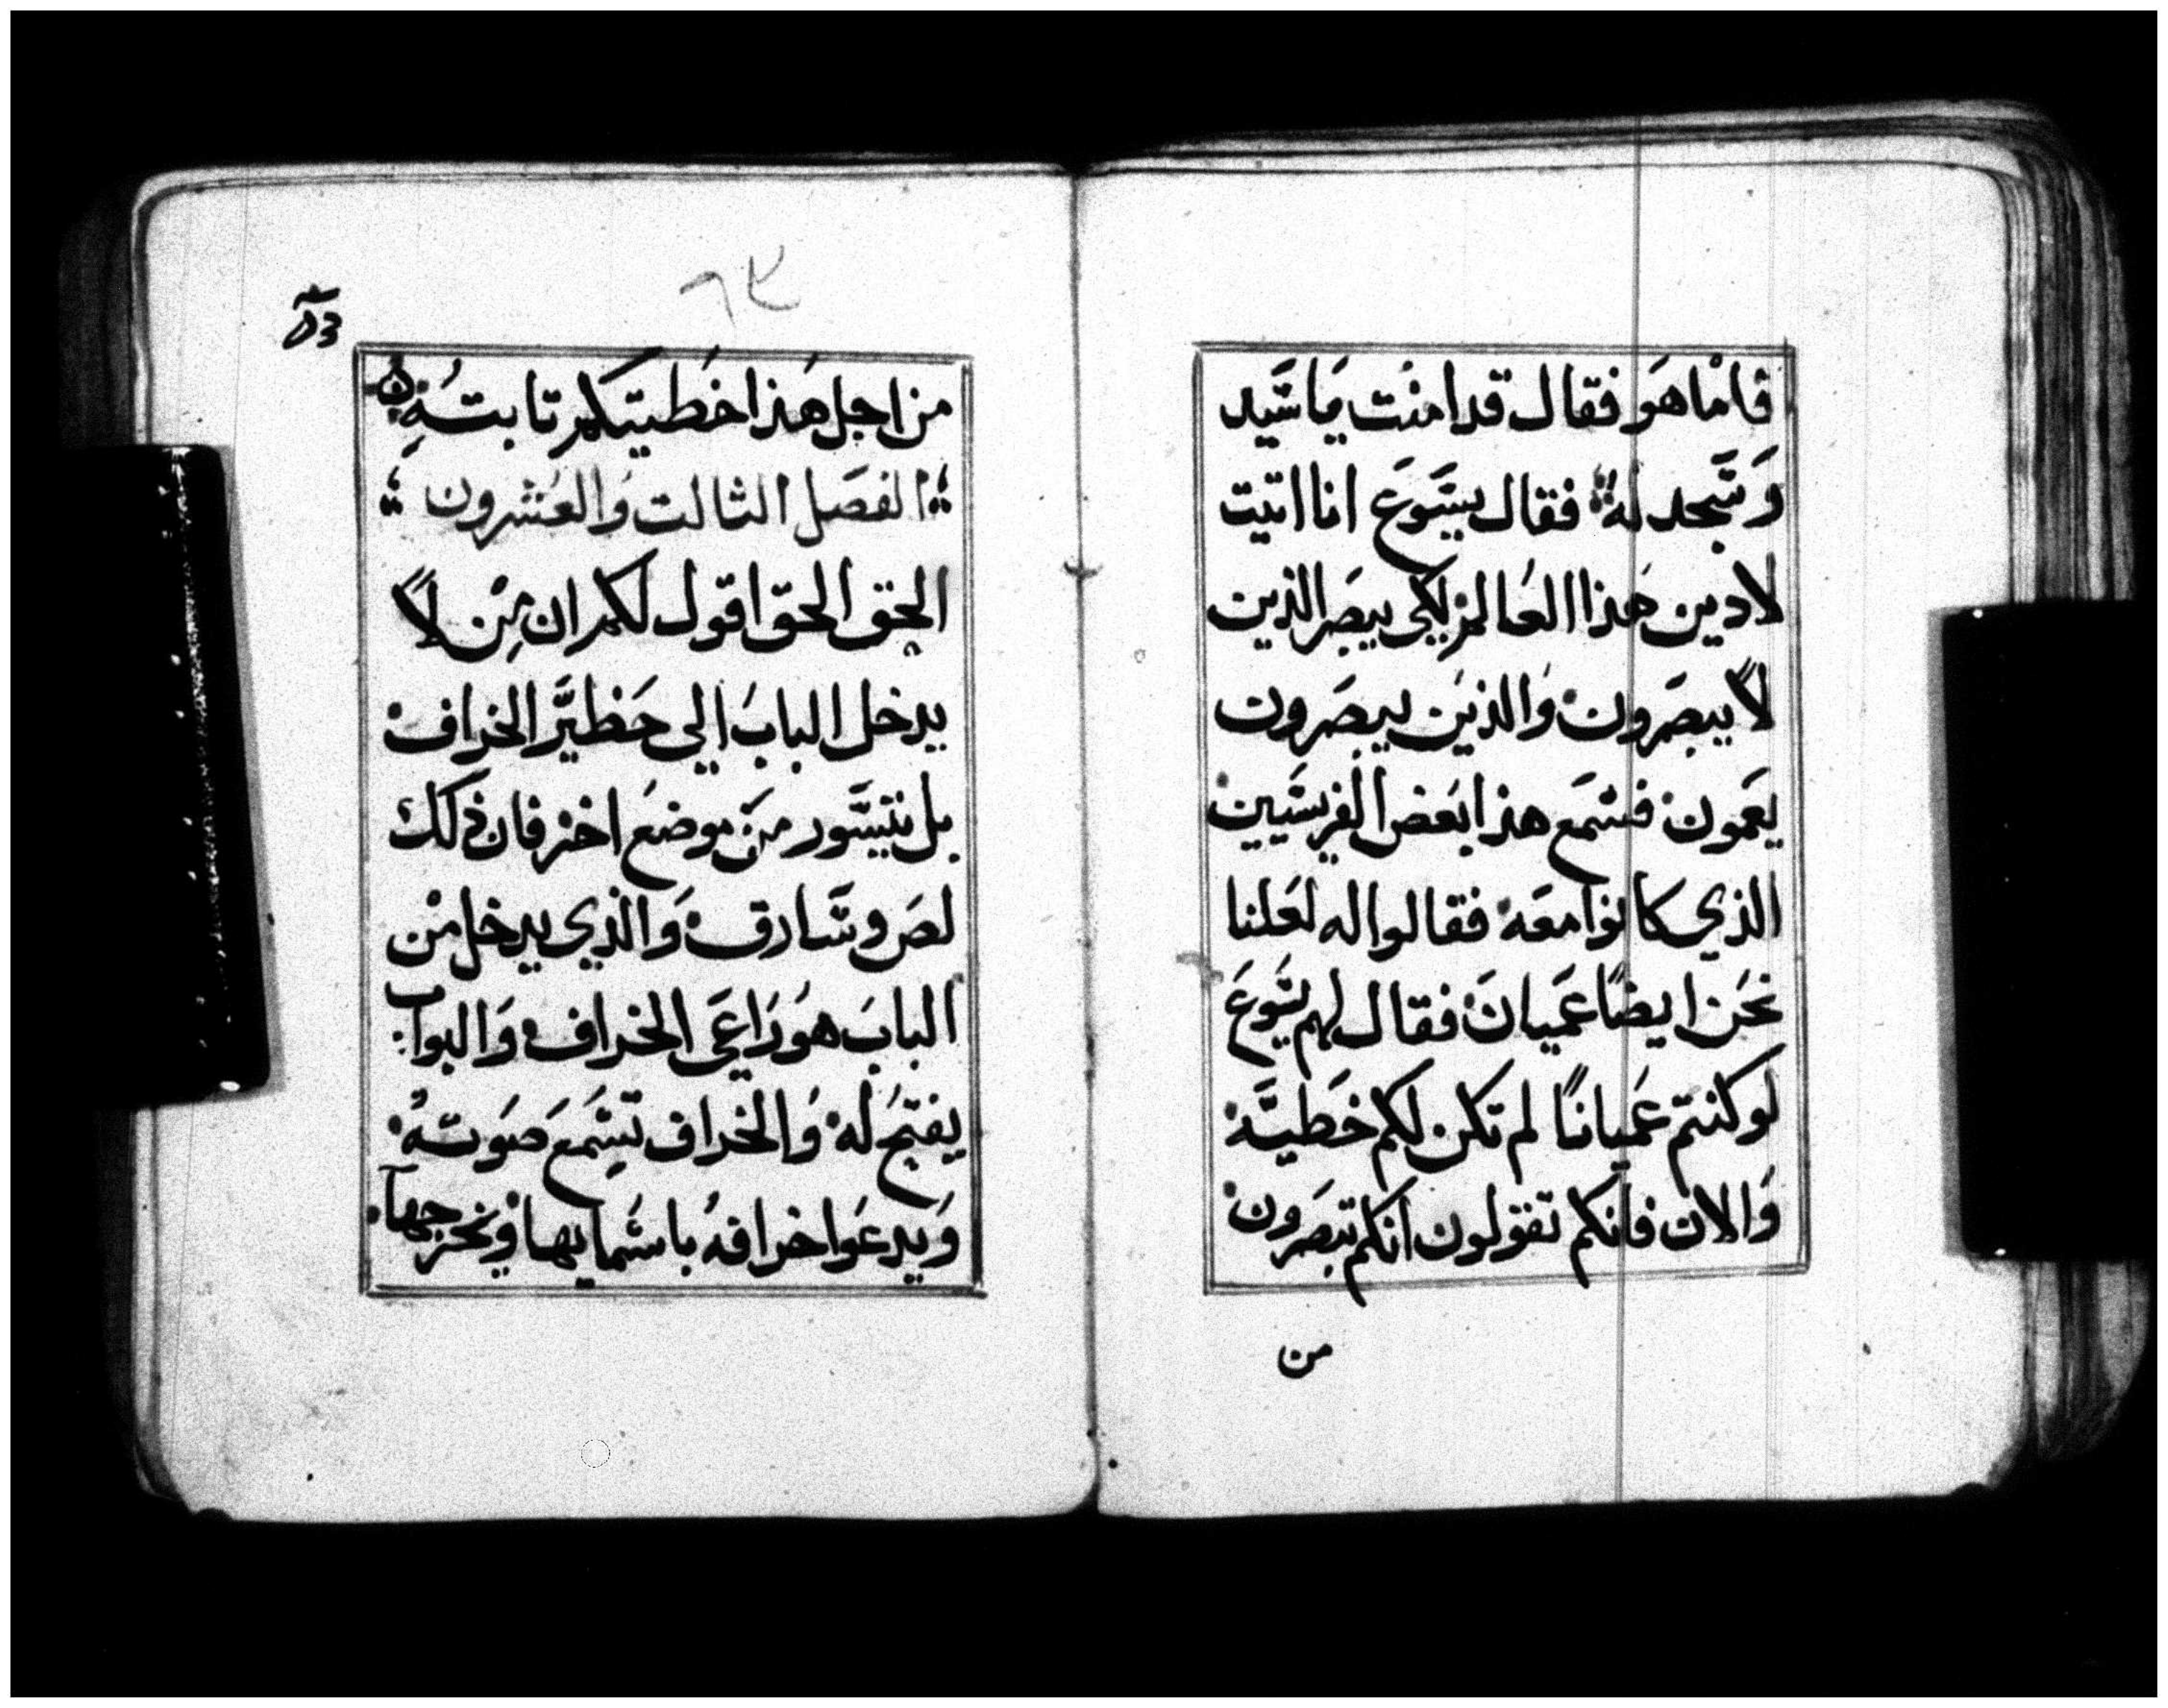 فاما هو فقال قد امنت يا سيد
وسجد له فقال يسوع انا اتيت
لادين هذا العالم لكي يبصر الذين
لا يبصرون والذين يبصرون
يعمون فسمع هذا بعض الفريسيين
الذي كانوا معه فقالوا له لعلنا
نحن ايضا عميان فقال لهم يسوع
لو كنتم عميانا لم تكن لكم خطية
والان فانكم تقولون انكم تبصرون
من
من اجل هذا خطيتكم تابته
الفصل الثالت والعشرون
الحق الحق اقول لكم ان من لا
يدخل الباب الي حظير الخراف
بل يتسور من موضع اخر فان ذلك
لص وسارق والذي يدخل من
الباب هو راعي الخراف والبواب
يفتح له والخراف تسمع صوته
ويدعوا خرافه باسمايها ويخرجها